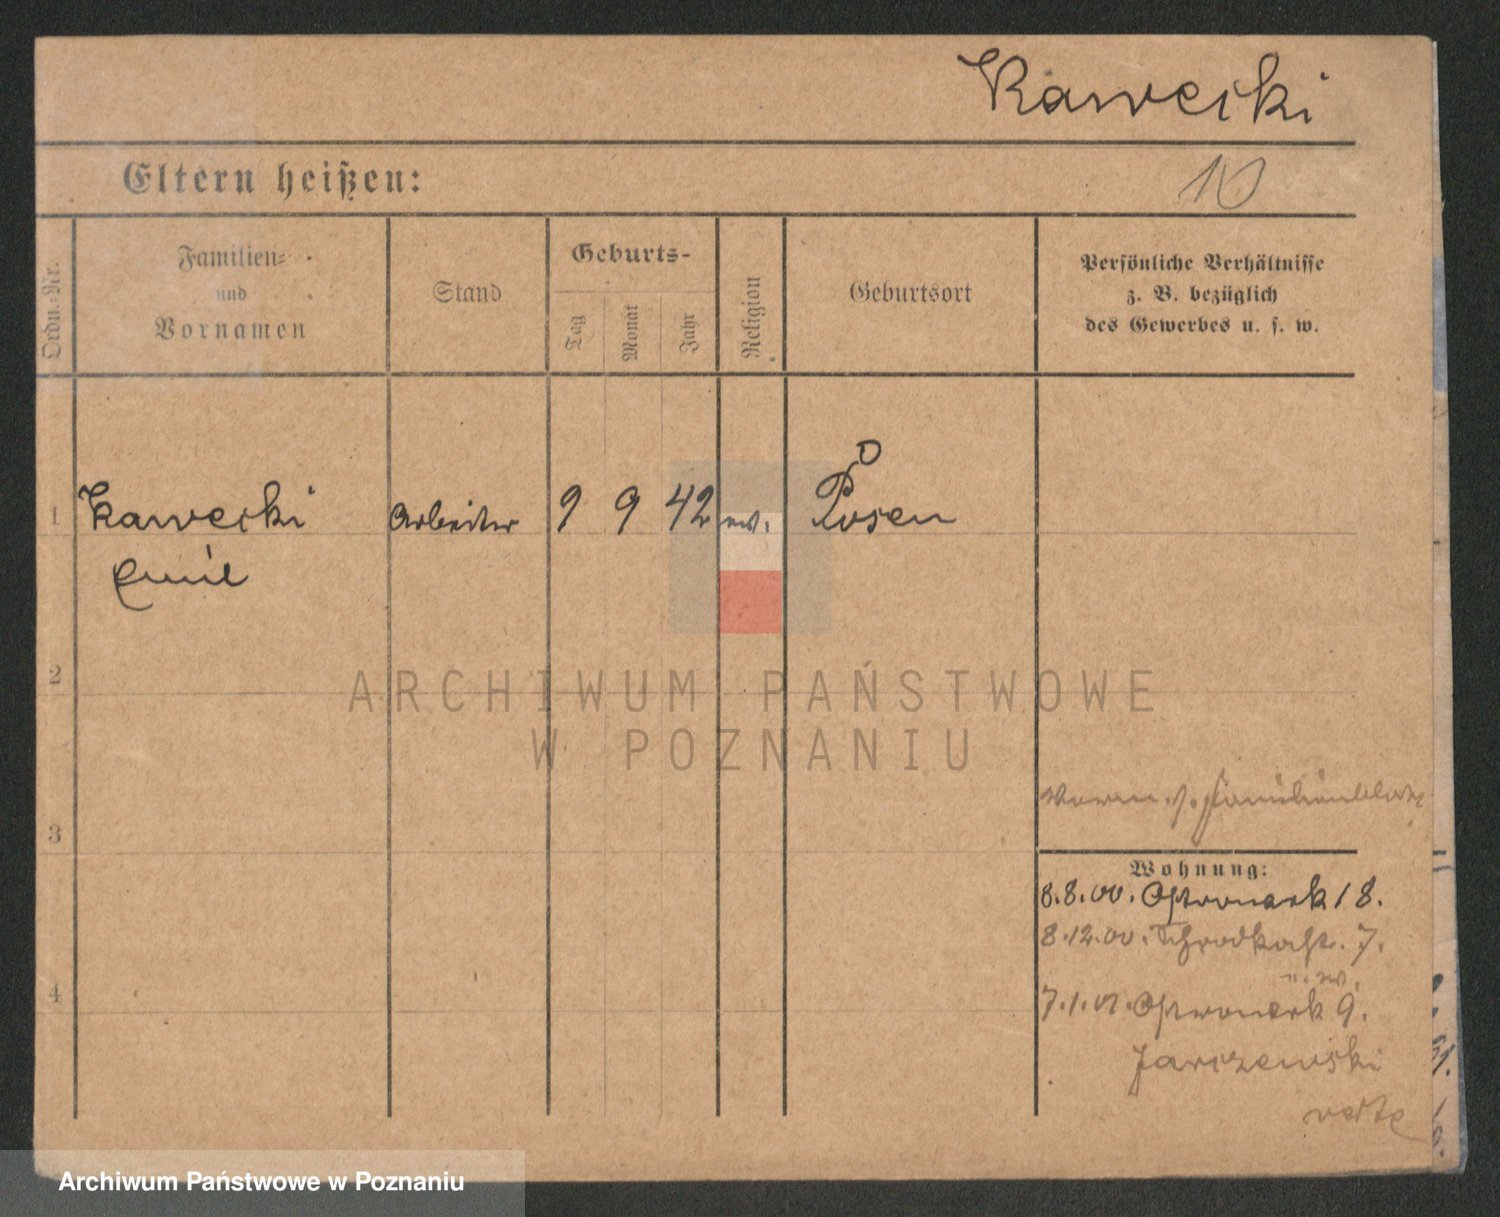 Kawecki
10
Eltern heißen:
Ordn.-Nr.
Familien-
und
Vornamen
Stand
Geburts-
Tag
Monat
Jahr
Religion
Geburtsort
Persönliche Verhältnisse
z. B. bezüglich
des Gewerbes u. s. w.
1 Kawecki Arbeiter 9 9 42 ev. Posen
Emil
2
ARCHIWUM PAŃSTWOWE
W POZNANIU
Familienblatt
3
Wohnung:
8.8.00. Ostrowek 18.
8.12.00. Schrodkast. 7.
4
7.1.01. Ostrowek 9.
Jarczewski
Archiwum Państwowe w Poznaniu